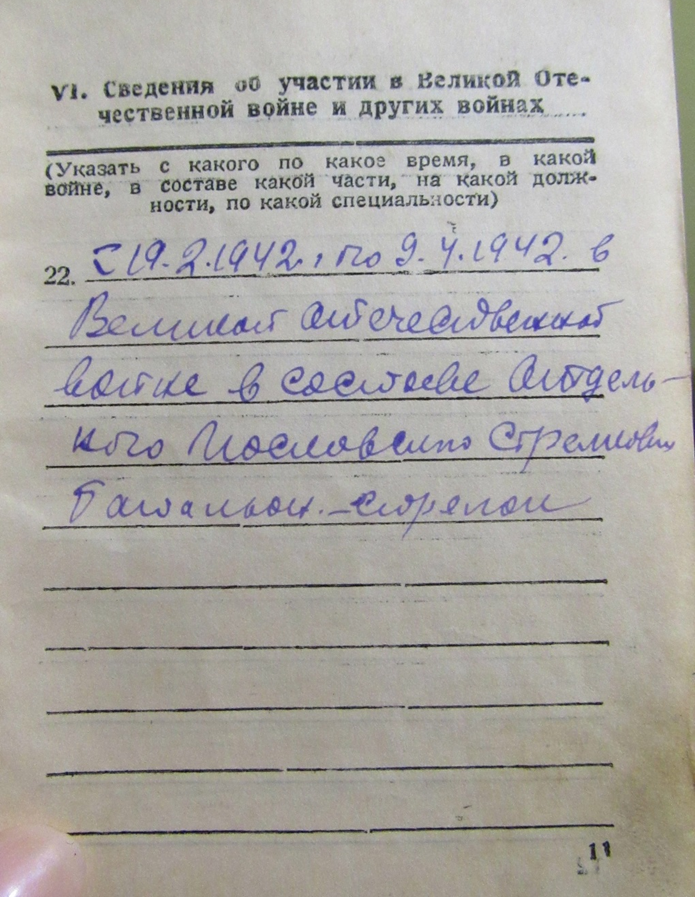 VI. Сведения об участии в Великой Оте-
чественной войне и других войнах
(Указать с какого по какое время, в какой
войне, в составе какой части, на какой долж-
ности, по какой специальности)
22. С 19.2.1942. по 9.4.1942. в
Великой Отечественной
войне в составе Отдель-
ного Московского Стрелковый
Батальон. - стрелок
11